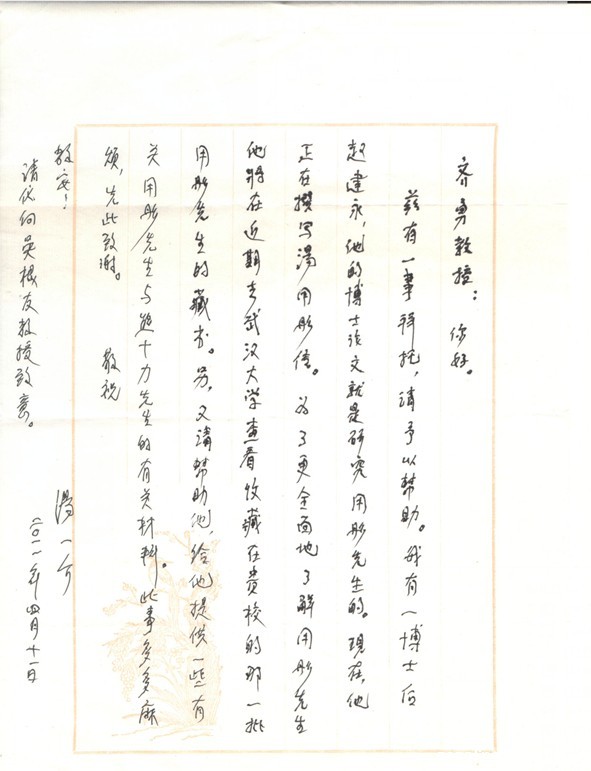 齐勇教授：你好。
兹有一事拜托，请予以幫助。我有一博士后
赵建永，他的博士论文就是研究用彤先生的。現在，他
正在撰写湯用彤傳。为了更全面地了解用彤先生
他將在近期去武汉大学查看收藏在贵校的那一批
用彤先生的藏书。另，又請幫助他，给他提供一些有
关用彤先生与熊十力先生的有关材料。此事多多麻
烦，先此致謝。敬祝
教安！
湯一介
二〇一一年四月十一日
請代向吴根友教授致意。